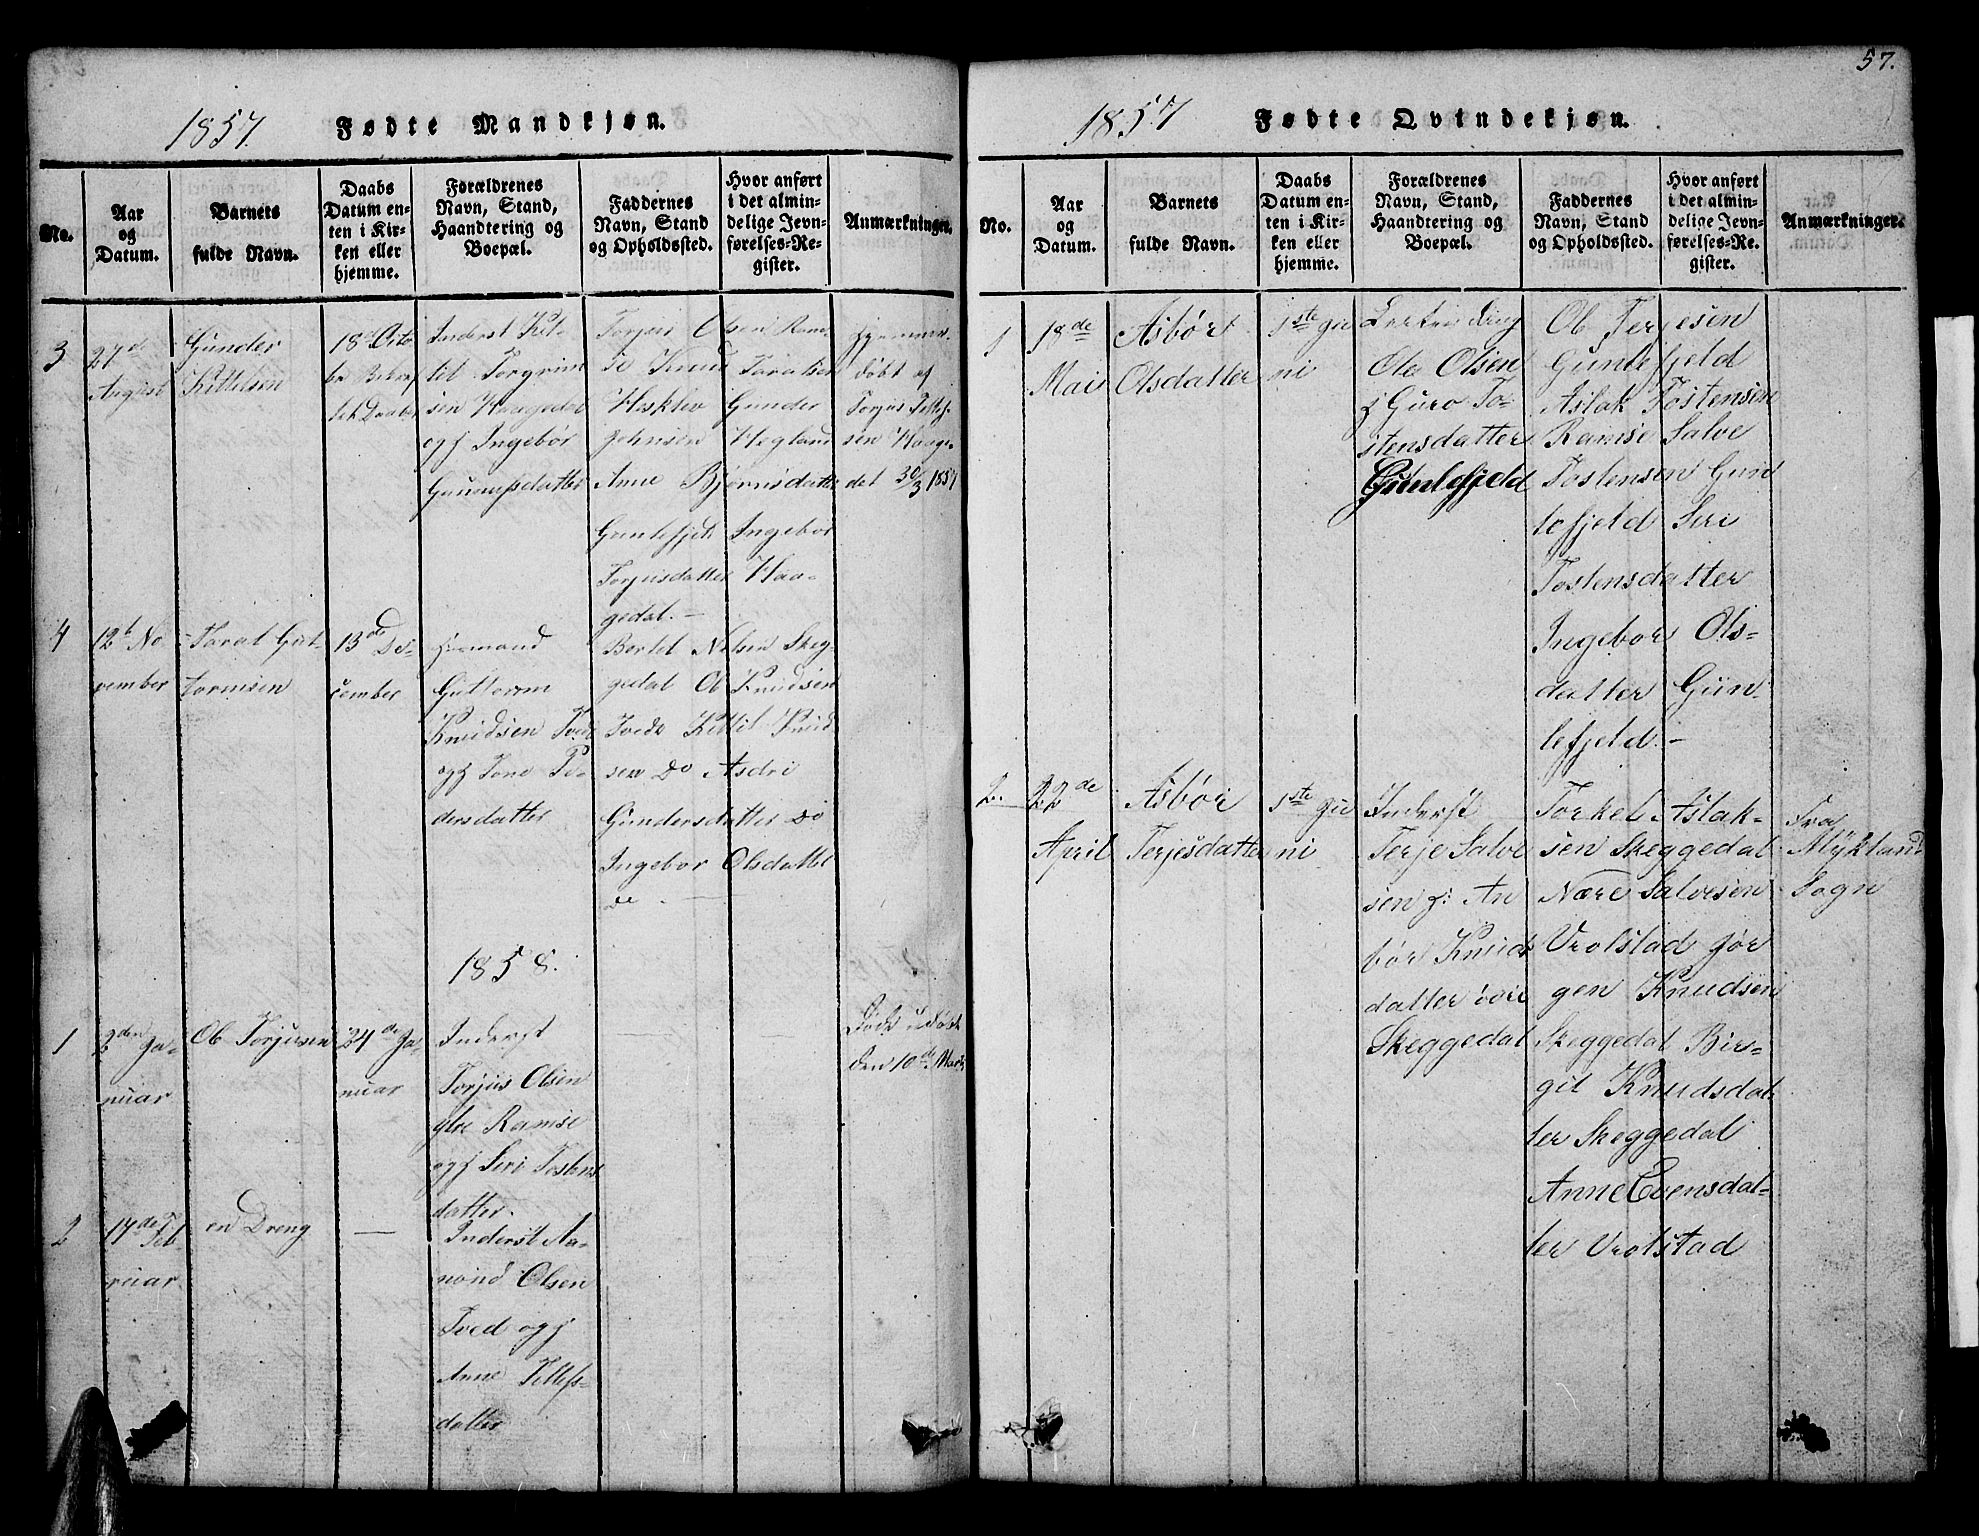 57.
1857.
Fødte Mandkjøn.
No.
Aar
og
Datum.
Barnets
fulde Navn.
Daabs
Datum en-
ten i Kir-
ken eller
hjemme.
Forældrenes
Navn, Stand,
Haandtering og
Boepæl.
Faddernes
Navn, Stand
og Opholdssted.
Hvor anført
i det almin-
delige Jevn-
førelses-Re-
gister.
Anmærkninger.
3
27de
August
Gunder
Kittelsen
18de Octo
Inderst Kit-
til Torgrim
sen Haagedal
og Ingebør
Torjus Olsen Ram
se Knud Taraldsen
Heslelev Gunder
Johnsen Hegland
Anne Bjørnsdatter
Gunlefjeld Ingebor
Torjusdatter Haa-
gedal.
Hjemme-
døbt af
Torjus
sen Haage-
det 30/3 1857
4
12te No
vember
Taral Gut-
tormsen
13de De-
cember
Guttorm
Knudsen Tvede
og Tone Pe-
dersdatter
Bertel Nilsen Skeg-
gedal O Knudsen
Tvede Kittil Knud
sen Do Asdri
Gundersdatter Do
Ingebor Olsdatter
Do.
1858.
1
2den Ja-
nuar
Ol Torjusen
24de Ja-
nuar
Inderst
Torjus Olsen
Ramse
og Siri Tostens
datter.
Døde udøbt
den 10de Marts
2
17de Feb-
ruar
en Dreng
—
Inderst Aa-
mond Olsen
Tved og
Anne Tellefs-
datter
1857
Fødte Qvindekjøn.
No.
Aar
og
Datum.
Barnets
fulde Navn.
Daabs
Datum en-
ten i Kir-
ken eller
hjemme.
Forældrenes
Navn, Stand,
Haandtering og
Boepæl.
Faddernes
Navn, Stand
og Opholdssted.
Hvor anført
i det almin-
delige Jevn-
førelses-Re-
gister.
Anmærkninger.
1
18de
Mai
Asbør
Olsdatter
1ste Ju
ni
Ole Olsen
Guro To-
stensdatter
Gunlefjeld
Ol Terjesen
Gunlefjeld
Aslak Tostensen
Ramse Salve
Tostensen Gun
lefjeld Siri
Tostensdatter
Ingebor Ols-
datter Gun-
lefjeld.
2.
22de
April
Asbør
Terjesdatter
1ste Ju
ni
Inderst
Terje Salve
sen An
bør Knuds
datter
Skeggedal
Torkel Aslak-
sen Skeggedal
Nære Salvesen
Vrolstad Jør
gen Knudsen
Skeggedal Bir-
git Knudsdat-
ter Skeggedal
Anne Evensdat-
ter Vrolstad
Fra
Mykland
Sogn